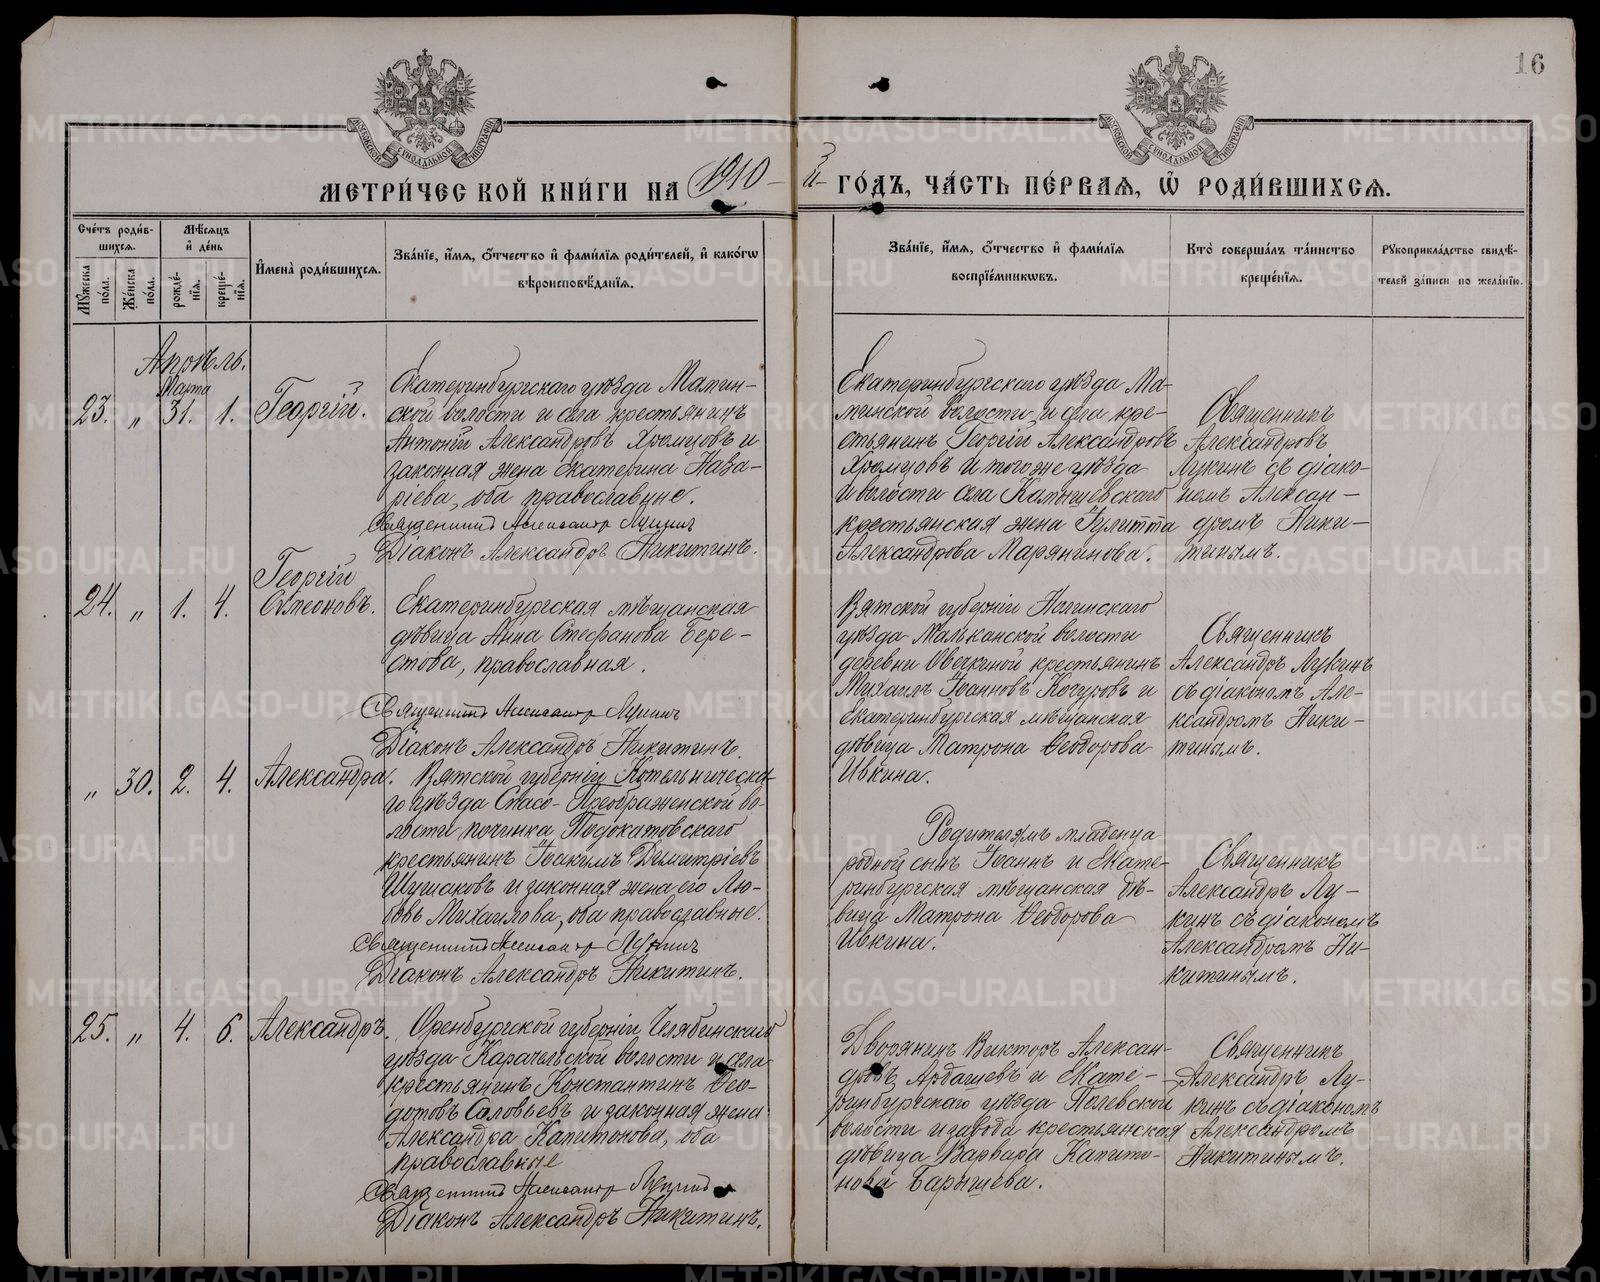 16
МОСКОВСКОЙ СѴНОДАЛЬНОЙ ТИПОГРАФІИ
МОСКОВСКОЙ СѴНОДАЛЬНОЙ ТИПОГРАФІИ
МЕТРИ́ЧЕСКОЙ КНИ́ГИ НА 1910-й ГО́ДЪ, ЧА́СТЬ ПЕ́РВАЯ, Ѡ РОДИ́ВШИХСЯ.
Сче́тъ роди́вшихся.
Мꙋ́жеска пола.
Же́нска по́ла.
Мѣ́сяцъ и де́нь
рожде́нія.
креще́нія.
И́мена̀ роди́вшихся.
Зва́ніе, и́мя, о́тчество и фами́лія роди́телей, и како́гѡ
вѣроисповѣ́данія.
Зва́ніе, и́мя, о́тчество и фами́лія
воспріе́мникѡвъ.
Кто̀ соверша́лъ та́инство
креще́нія.
Рꙋкоприкла́дство свидѣ́-
телей за́писи по жела́нію.
Апрѣль.
Марта
23. „ 31. 1. Георгій.
Екатеринбургскаго уѣзда Мамин-
ской волости и села крестьянинъ
Антоній Александровъ Хромцовъ и
законная жена Екатерина Наза-
ріева, оба православные.
Священникъ Александръ Лукинъ
Діаконъ Александръ Никитинъ.
Екатеринбургскаго уѣзда Ма-
минской волости и села кре-
стьянинъ Георгій Александровъ
Хромцовъ и того же уѣзда
и волости села Клопиевского
крестьянская жена Іулитта
Александрова Марянинова.
Священникъ
Александръ
Лукинъ съ діако-
номъ Алексан-
дромъ Ники-
тинымъ.
24. „ 1. 4. Георгій
Симеоновъ.
Екатеринбургская мѣщанская
дѣвица Анна Стефанова Бере-
стова, православная.
Священникъ Александръ Лукинъ
Діаконъ Александръ Никитинъ.
Вятской губерніи Нолинскаго
уѣзда Малканской волости
деревни Овечкиной крестьянинъ
Михаилъ Іоанновъ Кочуровъ и
Екатеринбургская мѣщанская
дѣвица Матрона Ѳеодорова
Ивкина.
Священникъ
Александръ Лукинъ
съ діакономъ Але-
ксандромъ Ники-
тинымъ.
„ 30. 2. 4. Александра.
Вятской губерніи Котельническа-
го уѣзда Спасо-Преображенской во-
лости починка Подокатовскаго
крестьянинъ Іоакимъ Димитріевъ
Шушаковъ и законная жена его Лю-
бовь Михаилова, оба православные.
Священникъ Александръ Лукинъ
Діаконъ Александръ Никитинъ.
Родителямъ младенца
родной сынъ Іоаннъ и Екате-
ринбургская мѣщанская дѣ-
вица Матрона Ѳеодорова
Ивкина.
Священникъ
Александръ Лу-
кинъ съ діакономъ
Александромъ Ни-
китинымъ.
25. „ 4. 6. Александръ.
Оренбургской губерніи Челябинскаго
уѣзда Карачельской волости и села
крестьянинъ Константинъ Ѳео-
дотовъ Соловьевъ и законная жена
Александра Капитонова, оба
православные
Священникъ Александръ Лукинъ
Діаконъ Александръ Никитинъ.
Дворянинъ Викторъ Алексан-
дровъ Ардашевъ и Екате-
ринбургскаго уѣзда Полевской
волости и завода крестьянская
дѣвица Варвара Капито-
нова Барышева.
Священникъ
Александръ Лу-
кинъ съ діакономъ
Александромъ
Никитинымъ.
METRIKI.GASO-URAL.RU